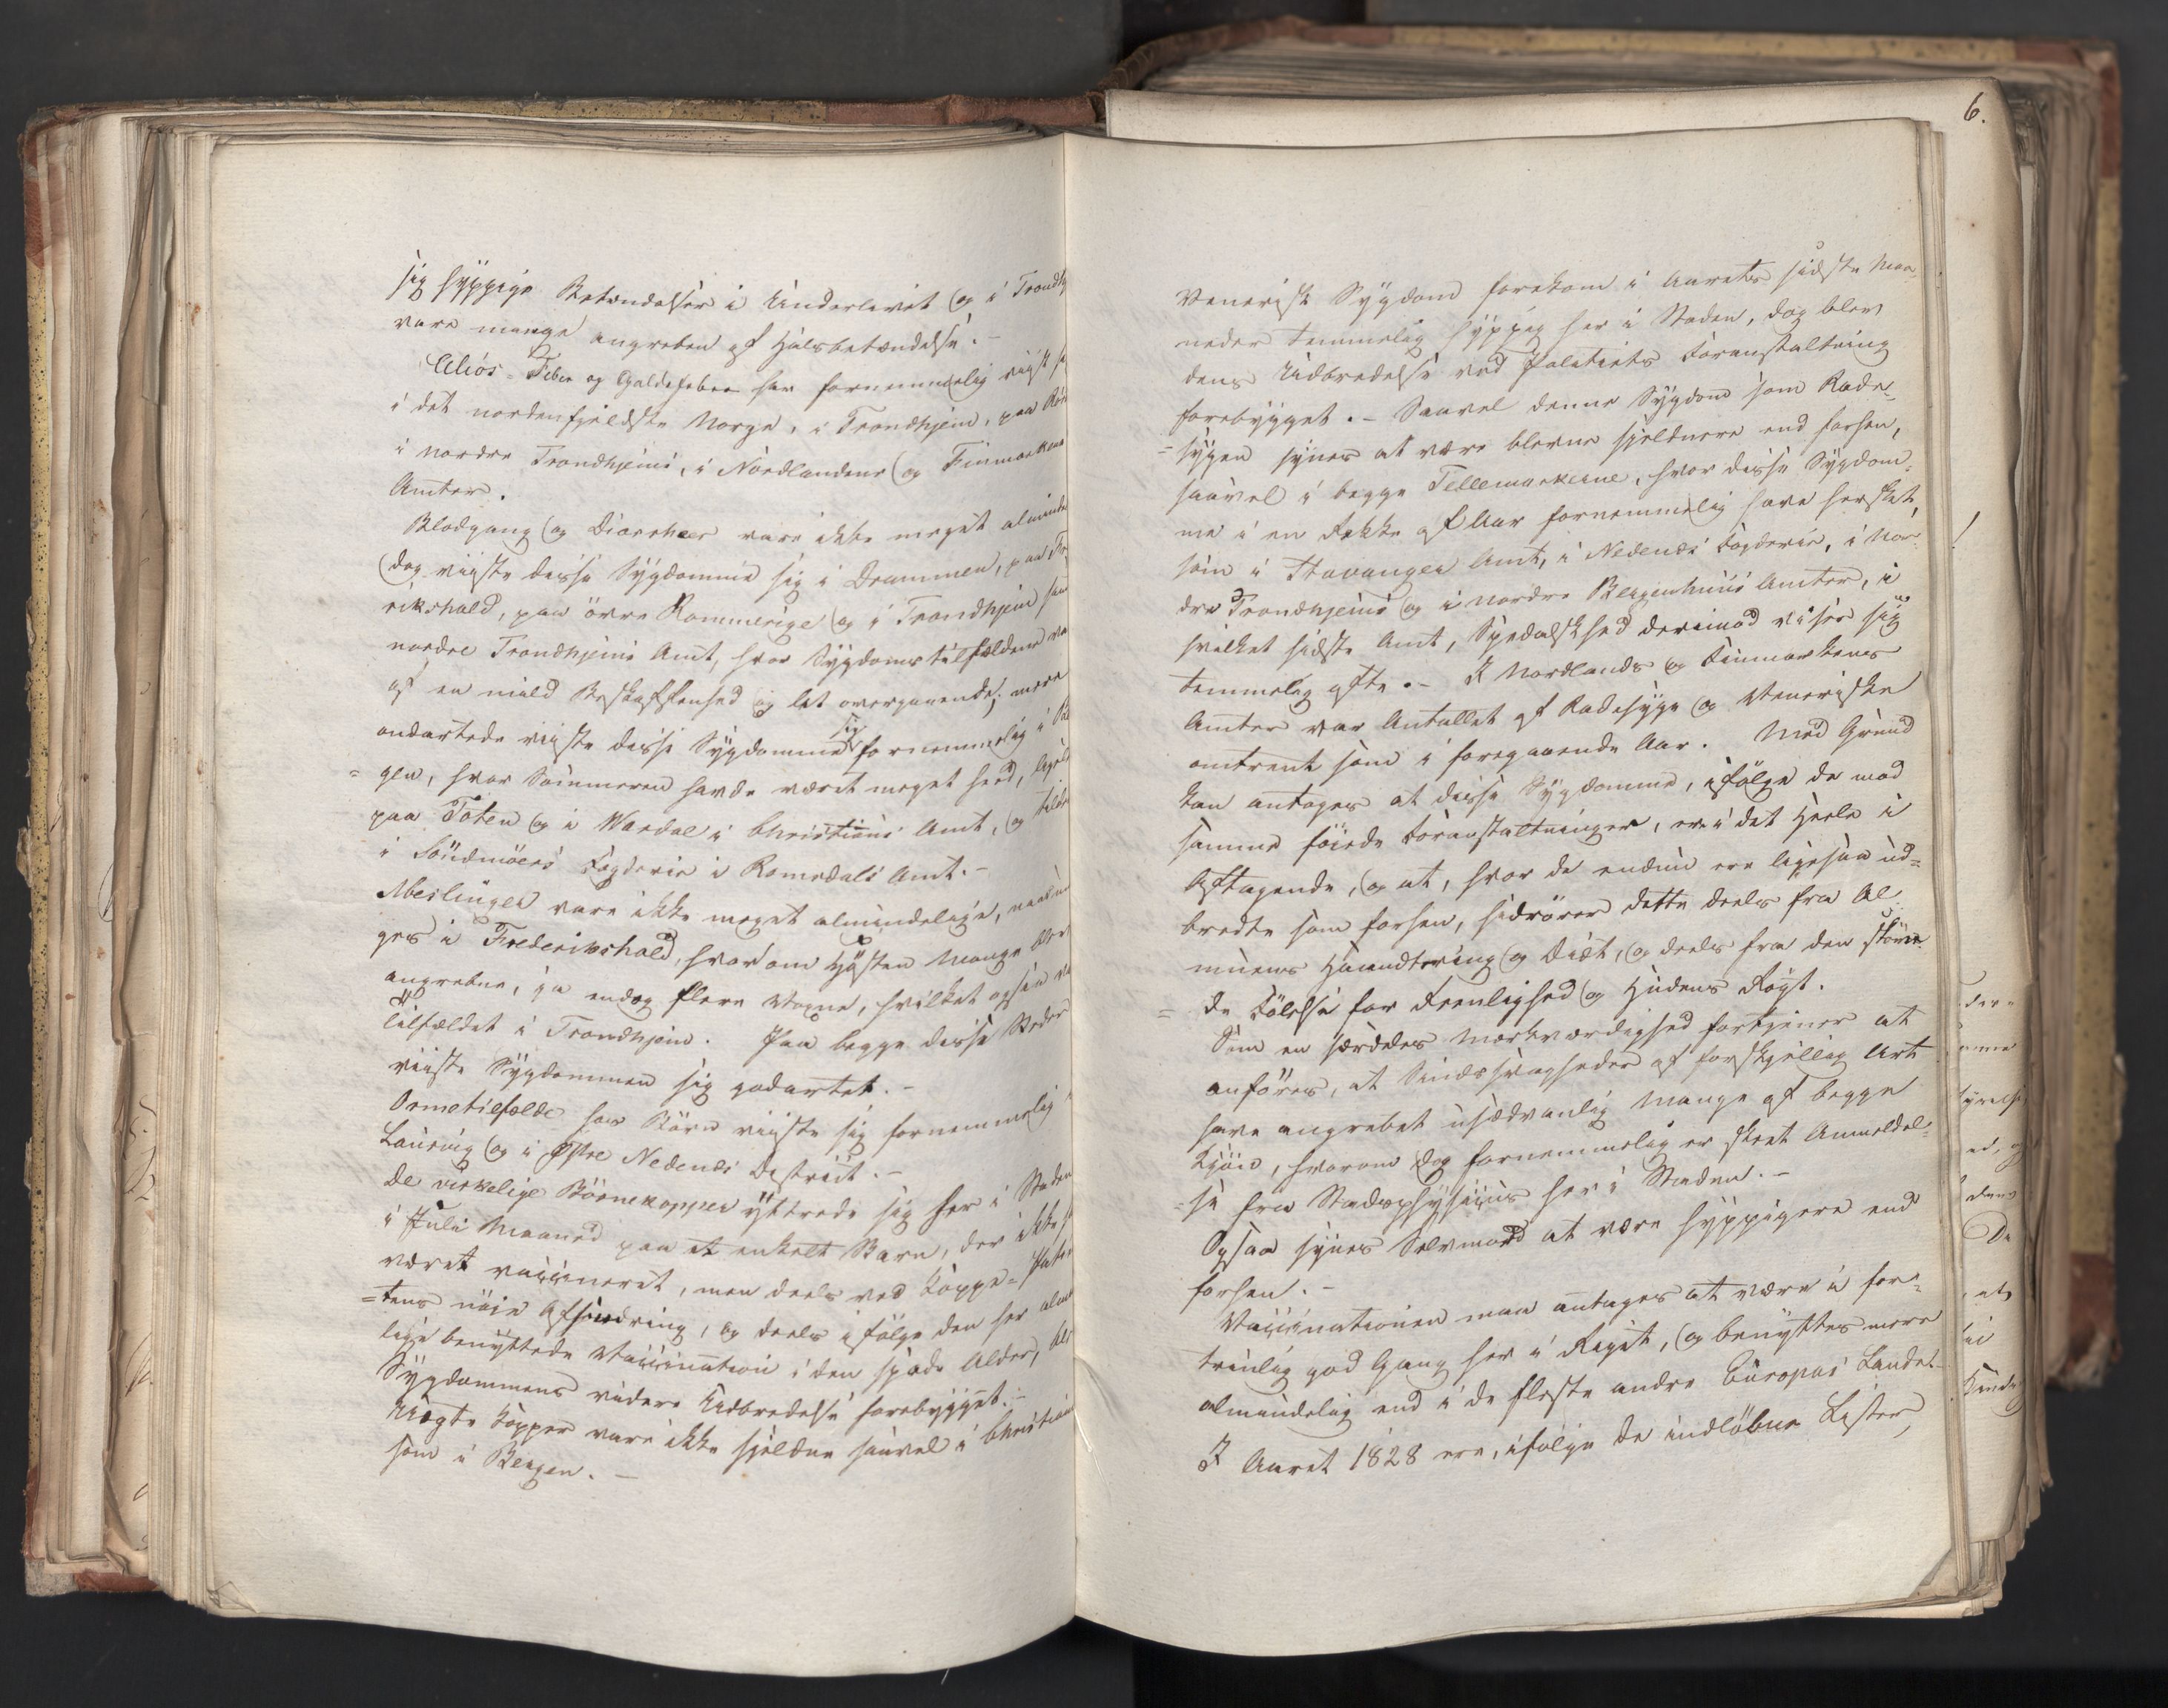 sig hyppige Betændelser i Underlivet og i Trondh
vare mange angreben af Halsbetændelse. –
Feber og Galdefeber har fornemmelig viist s
i det nordenfjeldske Norge, i Trondhjem, paa Rör
i nordre Trondhjems, i Nordlandene og Finmarkens
Amter.
Blodgang og Diarrheer vare ikke meget alminde
dog viiste disse Sygdomme sig i Drammen, paa Fre
rikshald, paa övre Rommerige og i Trondhjem sam
nordre Trondhjems Amt, hvor Sygdomstilfældene va
af en mild Beskaffenhed og let overgaaende; mere
ondartede viiste disse Sygdomme sig fornemmelig i B
gen, hvor Sommeren havde været meget heed, ligele
paa Toten og i Wardal i Christians Amt, og tilde
i Söndmöers Fogderie i Romsdals Amt. –
Meslinger vare ikke meget almindelige, 
ges i Frederikshald, hvor om Hösten Mange blev
angrebne, ja endog flere Voxne, hvilket ogsaa va
Tilfældet i Trondhjem. Paa begge disse Steder
viiste Sygdommen sig godartet. –
Ormetilfælde hos Börn viiste sig fornemmelig i
Laurvig og i Østre Nedenæs District. –
De virkelige Börnekopper yttrede sig her i Staden
i Juli Maaned paa et enkelt Barn, der ikke h
været vaccineret, men deels ved Koppe-Patien
=tens nöie Afsondring, og deels i fölge den her almi
lige benyttede Vaccination i den spæde Alder, ble
Sygdommens videre Udbredelse forebygget. –
Uægte Kopper vare ikke sjeldne saavel i Christian
som i Bergen. –
6.
Venerisk Sygdom forekom i Aarets sidste Maa-
neder temmelig hyppig her i Staden, dog blev
dens Udbredelse ved Politiets Foranstaltning
forebygget. – Saavel denne Sygdom som Rade-
=sygen synes at være blevne sjeldnere end forhen,
saavel i begge Tellemarkerne, hvor disse Sygdom-
me i en Række af Aar fornemmelig have hersket,
som i Stavanger Amt, i Nedenæs Fogderie, i Nor-
dre Trondhjems og i nordre Bergenhuus Amter, i
hvilket sidste Amt, Spedalskhed derimod viser sig
temmelig ofte. – I Nordlands og Finmarkens
Amter var Antallet af Radesyge og Veneriske
omtrent som i foregaaende Aar. Med Grund
kan antages at disse Sygdomme, ifölge de mod
samme föiede Foranstaltninger, ere i det Heele i
Aftagende, og at, hvor de endnu ere ligesaa ud-
bredte som forhen, hidrörer dette deels fra Al-
muens Haandtering og Diæt, og deels fra den
=de Fölelse for Reenlighed og Hudens Rögt.
Som en særdeles Mærkværdighed fortjener at
anföres, at Sindssvagheder af forskjellig Art
have angrebet usædvanlig Mange af begge
Kjön, hvorom dog fornemmelig er skeet Anmeldel-
=se fra Stadsphysicus her i Staden. –
Ogsaa synes Selvmord at være hyppigere end
forhen. –
Vaccinationen maa antages at være i for-
trinlig god Gang her i Riget, og benyttes mere
almindelig end i de fleste andre Europas Lande. –
I Aaret 1828 ere, ifölge de indlöbne Lister,